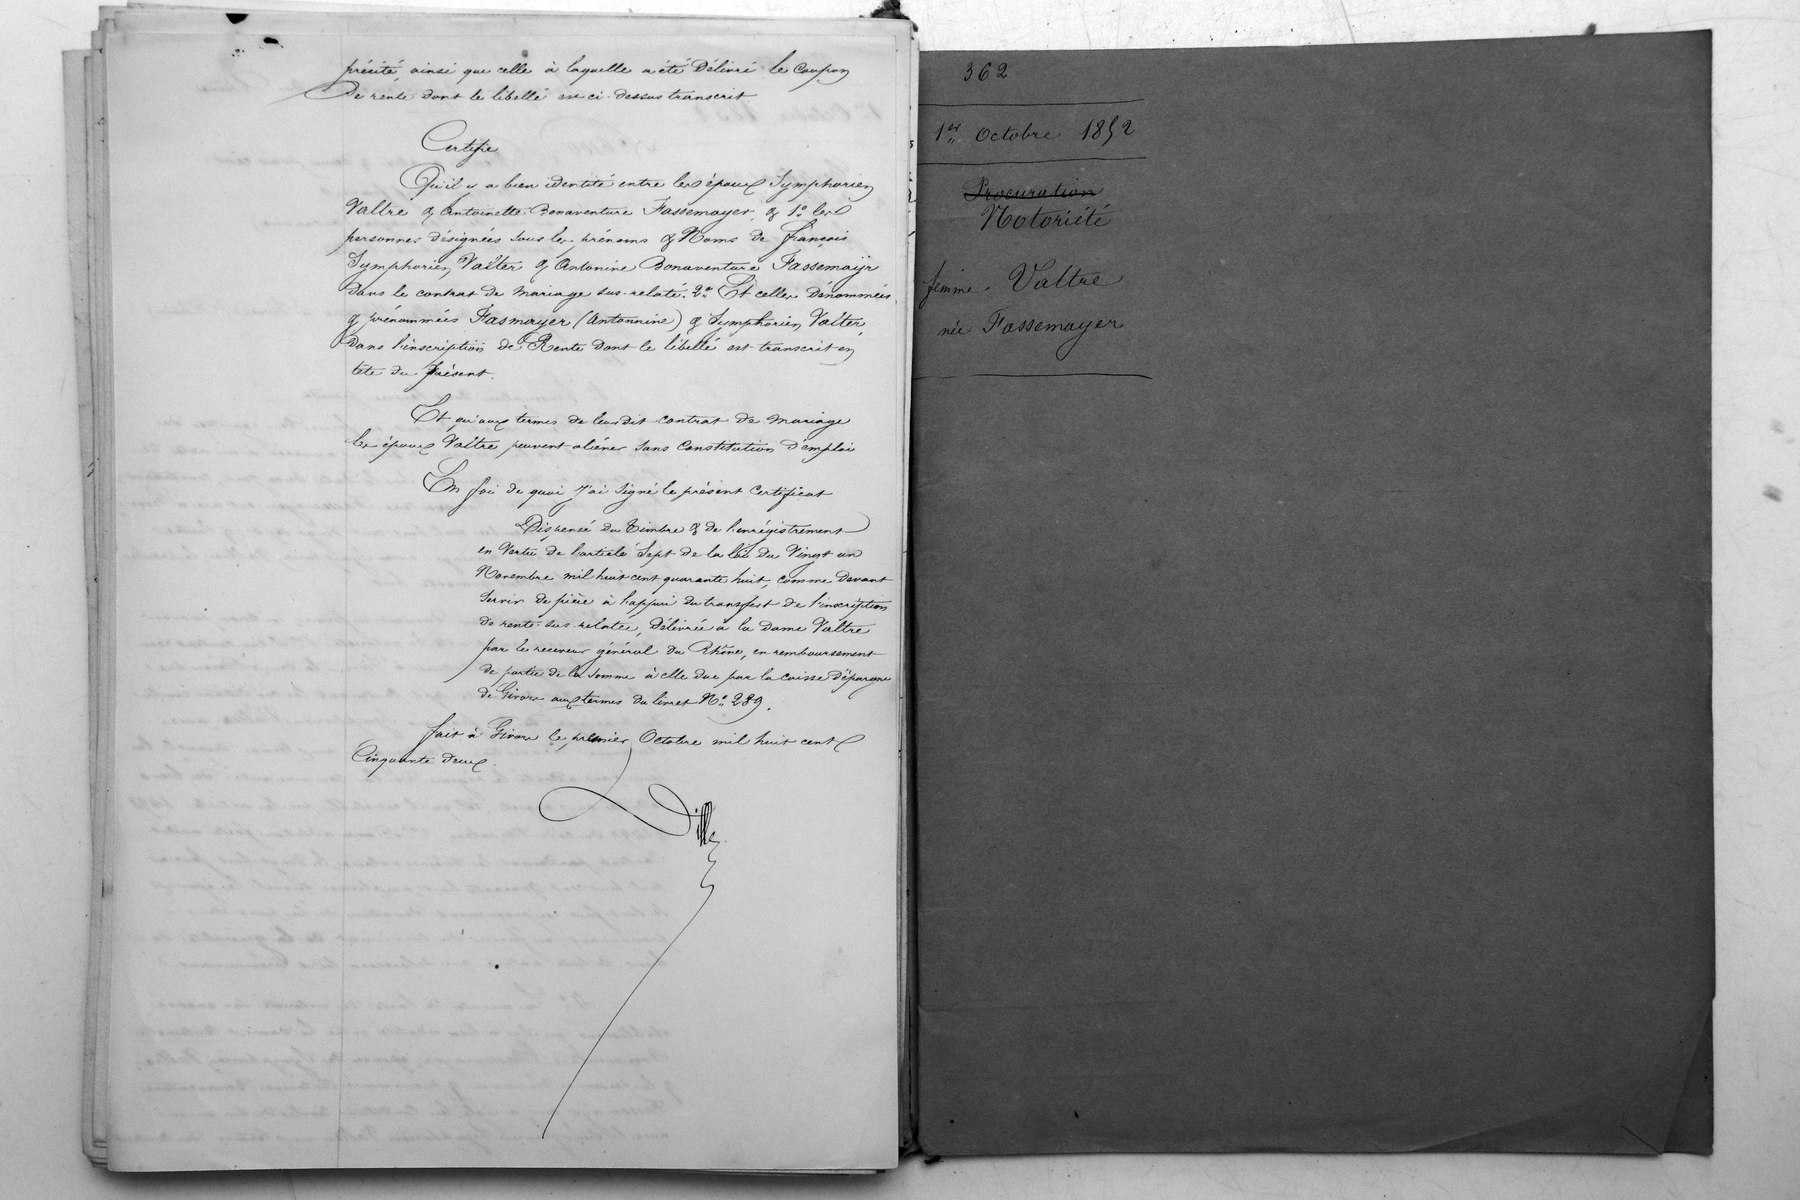 précité, ainsi que celle à laquelle a été Délivré le Coupon
De rente dont le libellé est ci-dessus transcrit
Certifie
Qu'il y a bien identité entre les époux Symphorien
Valtre & Antoinette Bonaventure Fassemayer, & 1.° les
personnes désignées sous les prénoms & Noms de françois
Symphorien Valter & Antonine Bonaventure Fassemaÿr
Dans le contrat de Mariage sus-relaté. 2.° Et celles Dénommées
& prénommées Fasmayer (Antonnine) & Symphorien Valter,
Dans l'inscription de Rente Dont le libellé est transcrit en
tête du Présent.
Et qu'aux termes de leur dit contrat de Mariage
les époux Valtre peuvent aliéner sans Constitution D'emploi
En foi de quoi j'ai signé le présent Certificat
Dispensé du timbre & de l'enrégistrement
en Vertu de l'article Sept de la loi du Vingt un
Novembre mil huit cent quarante huit, comme Devant
servir de pièce à l'appui du transfert de l'inscription
de rente sus-relatée, Délivrée à la Dame Valtre
par le receveur général du Rhône, en remboursement
de partie de la somme à elle due par la caisse d'épargne
de Givors aux termes du livret N.° 289.
fait à Givors le premier Octobre mil huit cent
Cinquante deux.
362
1er Octobre 1852
Procuration
Notoriété
femme Valtre
née Fassemayer